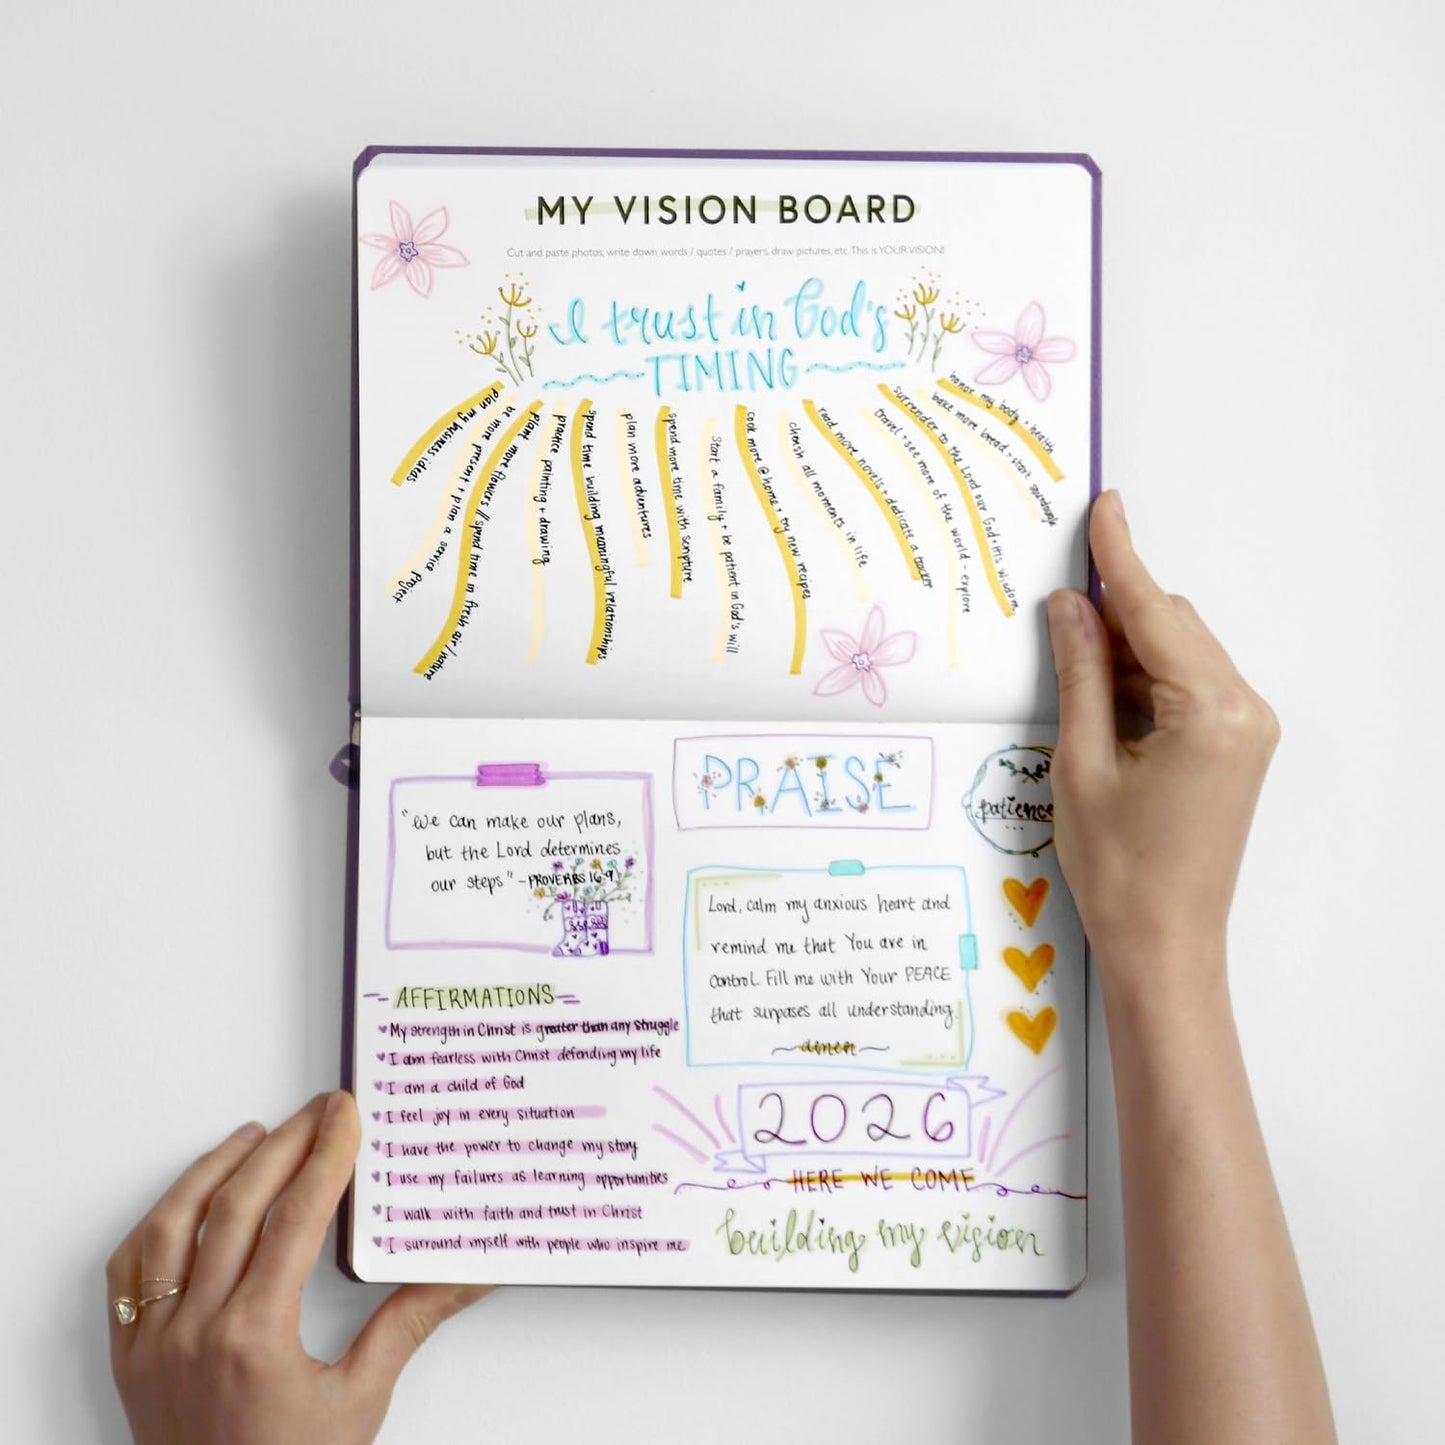 MY VISION BOARD
Cut and paste photos, write down words / quotes / prayers, draw pictures, etc. This is YOUR VISION!
I trust in God's
TIMING
plan my business ideas
be more present + plan a service project
plant more flowers // spend time in fresh air/nature
practice painting + drawing
spend time building meaningful relationships
plan more adventures
spend more time with scripture
Start a family + be patient in God's will
cook more @ home + try new recipes
cherish all moments in life
read more novels + dedicate a tracker
travel + see more of the world - explore
surrender to the Lord our God + His wisdom
bake more bread + start sourdough
honor my body + health
"We can make our plans,
but the Lord determines
our steps" - PROVERBS 16:9
PRAISE
patience
Lord, calm my anxious heart and
remind me that You are in
control. Fill me with Your PEACE
that surpases all understanding.
amen
AFFIRMATIONS
My strength in Christ is greater than any struggle
I am fearless with Christ defending my life
I am a child of God
I feel joy in every situation
I have the power to change my story
I use my failures as learning opportunities
I walk with faith and trust in Christ
I surround myself with people who inspire me
2026
HERE WE COME
building my vision